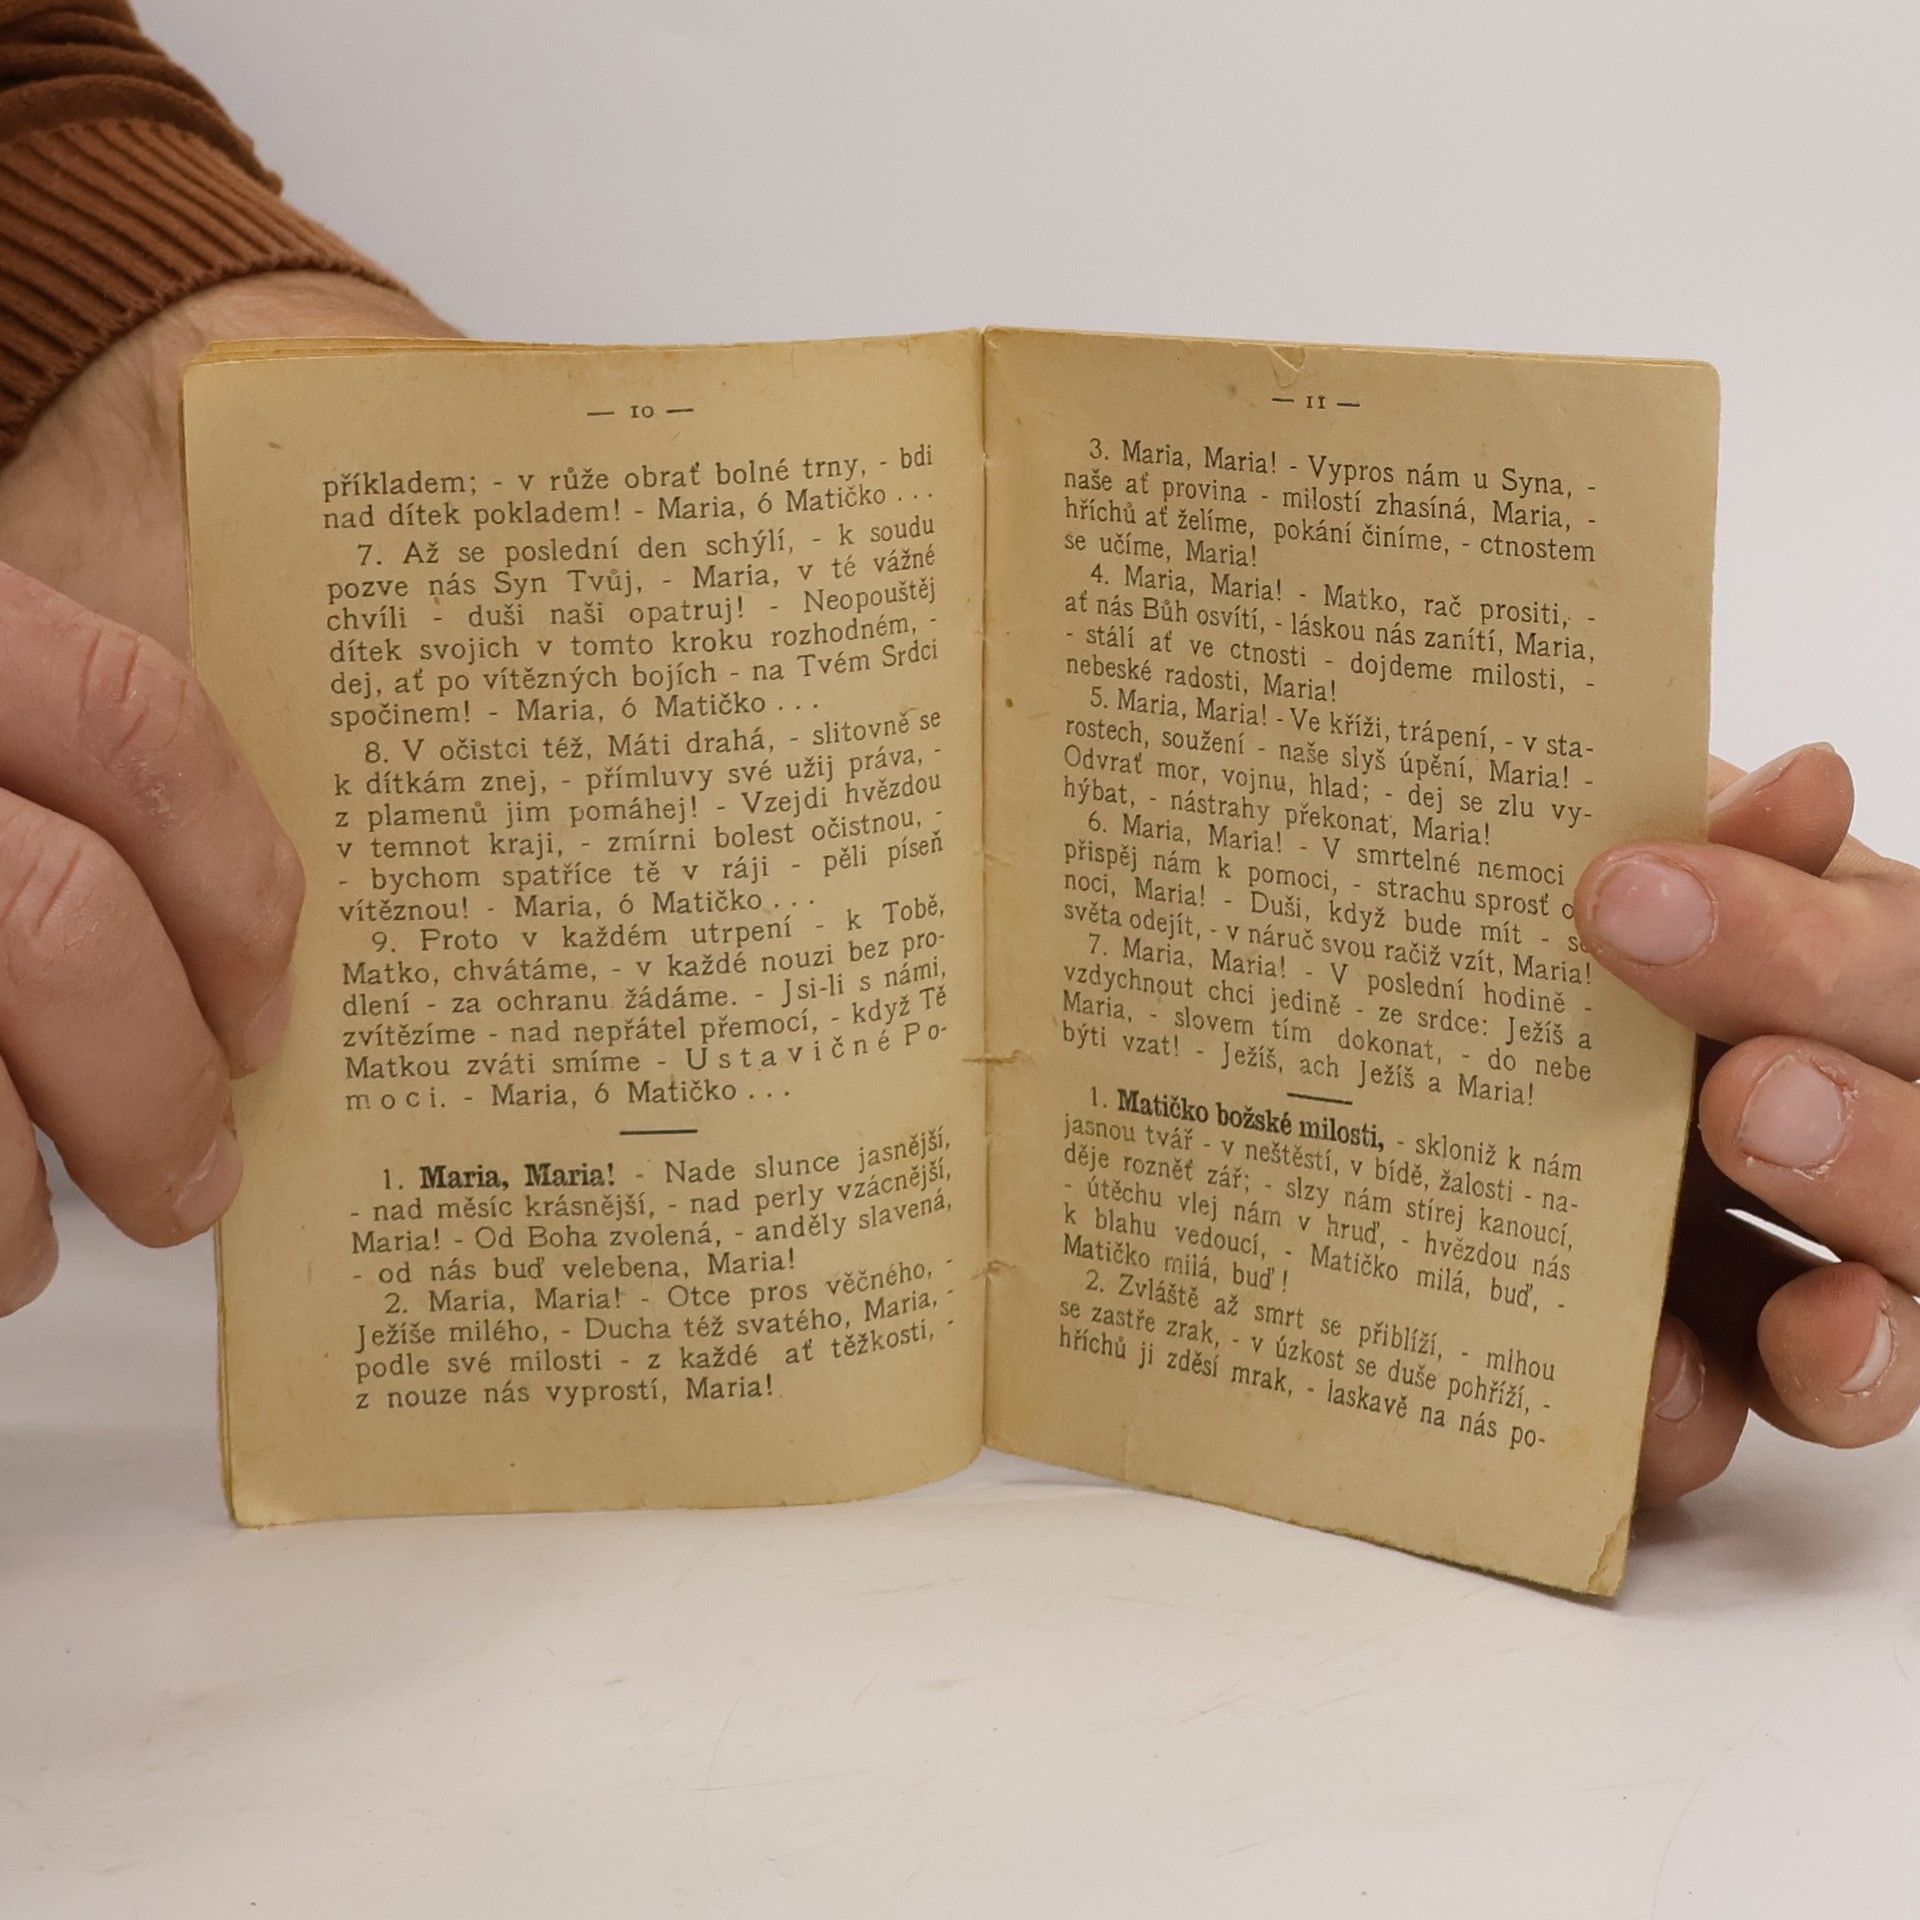 — 10 —
příkladem; - v růže obrať bolné trny, - bdi
nad dítek pokladem! - Maria, ó Matičko . . .
7. Až se poslední den schýlí, - k soudu
pozve nás Syn Tvůj, - Maria, v té vážné
chvíli - duši naši opatruj! - Neopouštěj
dítek svojich v tomto kroku rozhodném, -
dej, ať po vítězných bojích - na Tvém Srdci
spočinem! - Maria, ó Matičko . . .
8. V očistci též, Máti drahá, - slitovně se
k dítkám znej, - přímluvy své užij práva, -
z plamenů jim pomáhej! - Vzejdi hvězdou
v temnot kraji, - zmírni bolest očistnou, -
- bychom spatříce tě v ráji - pěli píseň
vítěznou! - Maria, ó Matičko . . .
9. Proto v každém utrpení - k Tobě,
Matko, chvátáme, - v každé nouzi bez pro-
dlení - za ochranu žádáme. - Jsi-li s námi,
zvítězíme - nad nepřátel přemocí, - když Tě
Matkou zváti smíme - Ustavičné Po-
moci. - Maria, ó Matičko . . .
1. Maria, Maria! - Nade slunce jasnější,
- nad měsíc krásnější, - nad perly vzácnější,
Maria! - Od Boha zvolená, - anděly slavená,
- od nás buď velebena, Maria!
2. Maria, Maria! - Otce pros věčného, -
Ježíše milého, - Ducha též svatého, Maria, -
podle své milosti - z každé ať těžkosti, -
z nouze nás vyprostí, Maria!
— 11 —
3. Maria, Maria! - Vypros nám u Syna, -
naše ať provina - milostí zhasíná, Maria, -
hříchů ať želíme, pokání činíme, - ctnostem
se učíme, Maria!
4. Maria, Maria! - Matko, rač prositi, -
ať nás Bůh osvítí, - láskou nás zanítí, Maria,
- stálí ať ve ctnosti - dojdeme milosti, -
nebeské radosti, Maria!
5. Maria, Maria! - Ve kříži, trápení, - v sta-
rostech, soužení - naše slyš úpění, Maria! -
Odvrať mor, vojnu, hlad; - dej se zlu vy-
hýbat, - nástrahy překonat, Maria!
6. Maria, Maria! - V smrtelné nemoci
přispěj nám k pomoci, - strachu sprosť
noci, Maria! - Duši, když bude mít -
světa odejít, - v náruč svou račiž vzít, Maria!
7. Maria, Maria! - V poslední hodině -
vzdychnout chci jedině - ze srdce: Ježíš a
Maria, - slovem tím dokonat, - do nebe
býti vzat! - Ježíš, ach Ježíš a Maria!
1. Matičko božské milosti, - skloniž k nám
jasnou tvář - v neštěstí, v bídě, žalosti - na-
děje rozněť zář; - slzy nám stírej kanoucí,
- útěchu vlej nám v hruď, - hvězdou nás
k blahu vedoucí, - Matičko milá, buď, -
Matičko milá, buď!
2. Zvláště až smrt se přiblíží, - mlhou
se zastře zrak, - v úzkost se duše pohříží, -
hříchů ji zděsí mrak, - laskavě na nás po-